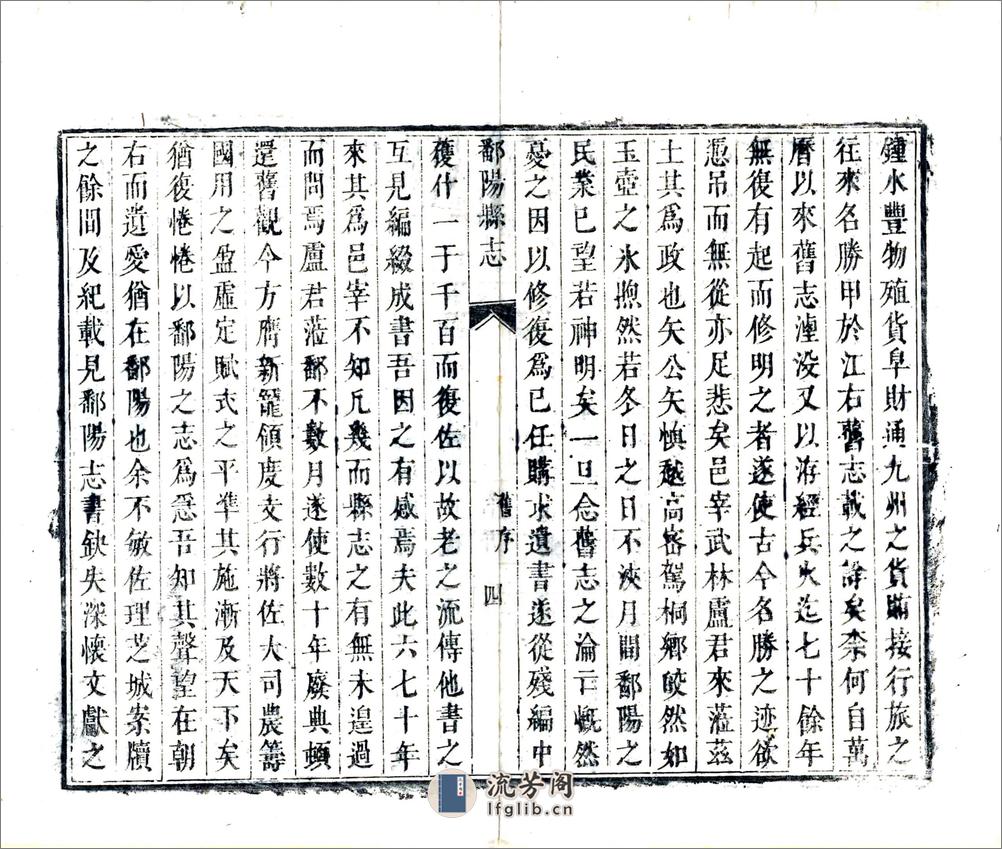 鍾水豐物殖貨阜財通九州之貨賄接行旅之
往來名勝甲於江右舊志載之詳矣柰何自萬
曆以來舊志湮没又以洊經兵火迄七十餘年
無復有起而修明之者遂使古今名勝之迹欲
憑吊而無從亦足悲矣邑宰武林盧君來蒞茲
土其為政也矢公矢慎越高宻駕桐鄉皎然如
玉壺之氷煦然若冬日之日不浹月間鄱陽之
民業已望若神明矣一旦念舊志之淪亡慨然
憂之因以修復為已任購求遺書遂從殘編中
鄱陽縣志
舊序
四
獲什一于千百而復佐以故老之流傳他書之
互見編綴成書吾因之有感焉夫此六七十年
來其為邑宰不知凡幾而縣志之有無未遑過
而問焉盧君蒞鄱不數月遂使數十年廢典頓
還舊觀今方膺新寵領度支行將佐大司農籌
國用之盈虛定賦式之平準其施漸及天下矣
猶復惓惓以鄱陽之志為急吾知其聲望在朝
右而遺愛猶在鄱陽也余不敏佐理芝城案牘
之餘間及紀載見鄱陽志書缺失深懷文獻之
流芳阁
lfglib.cn